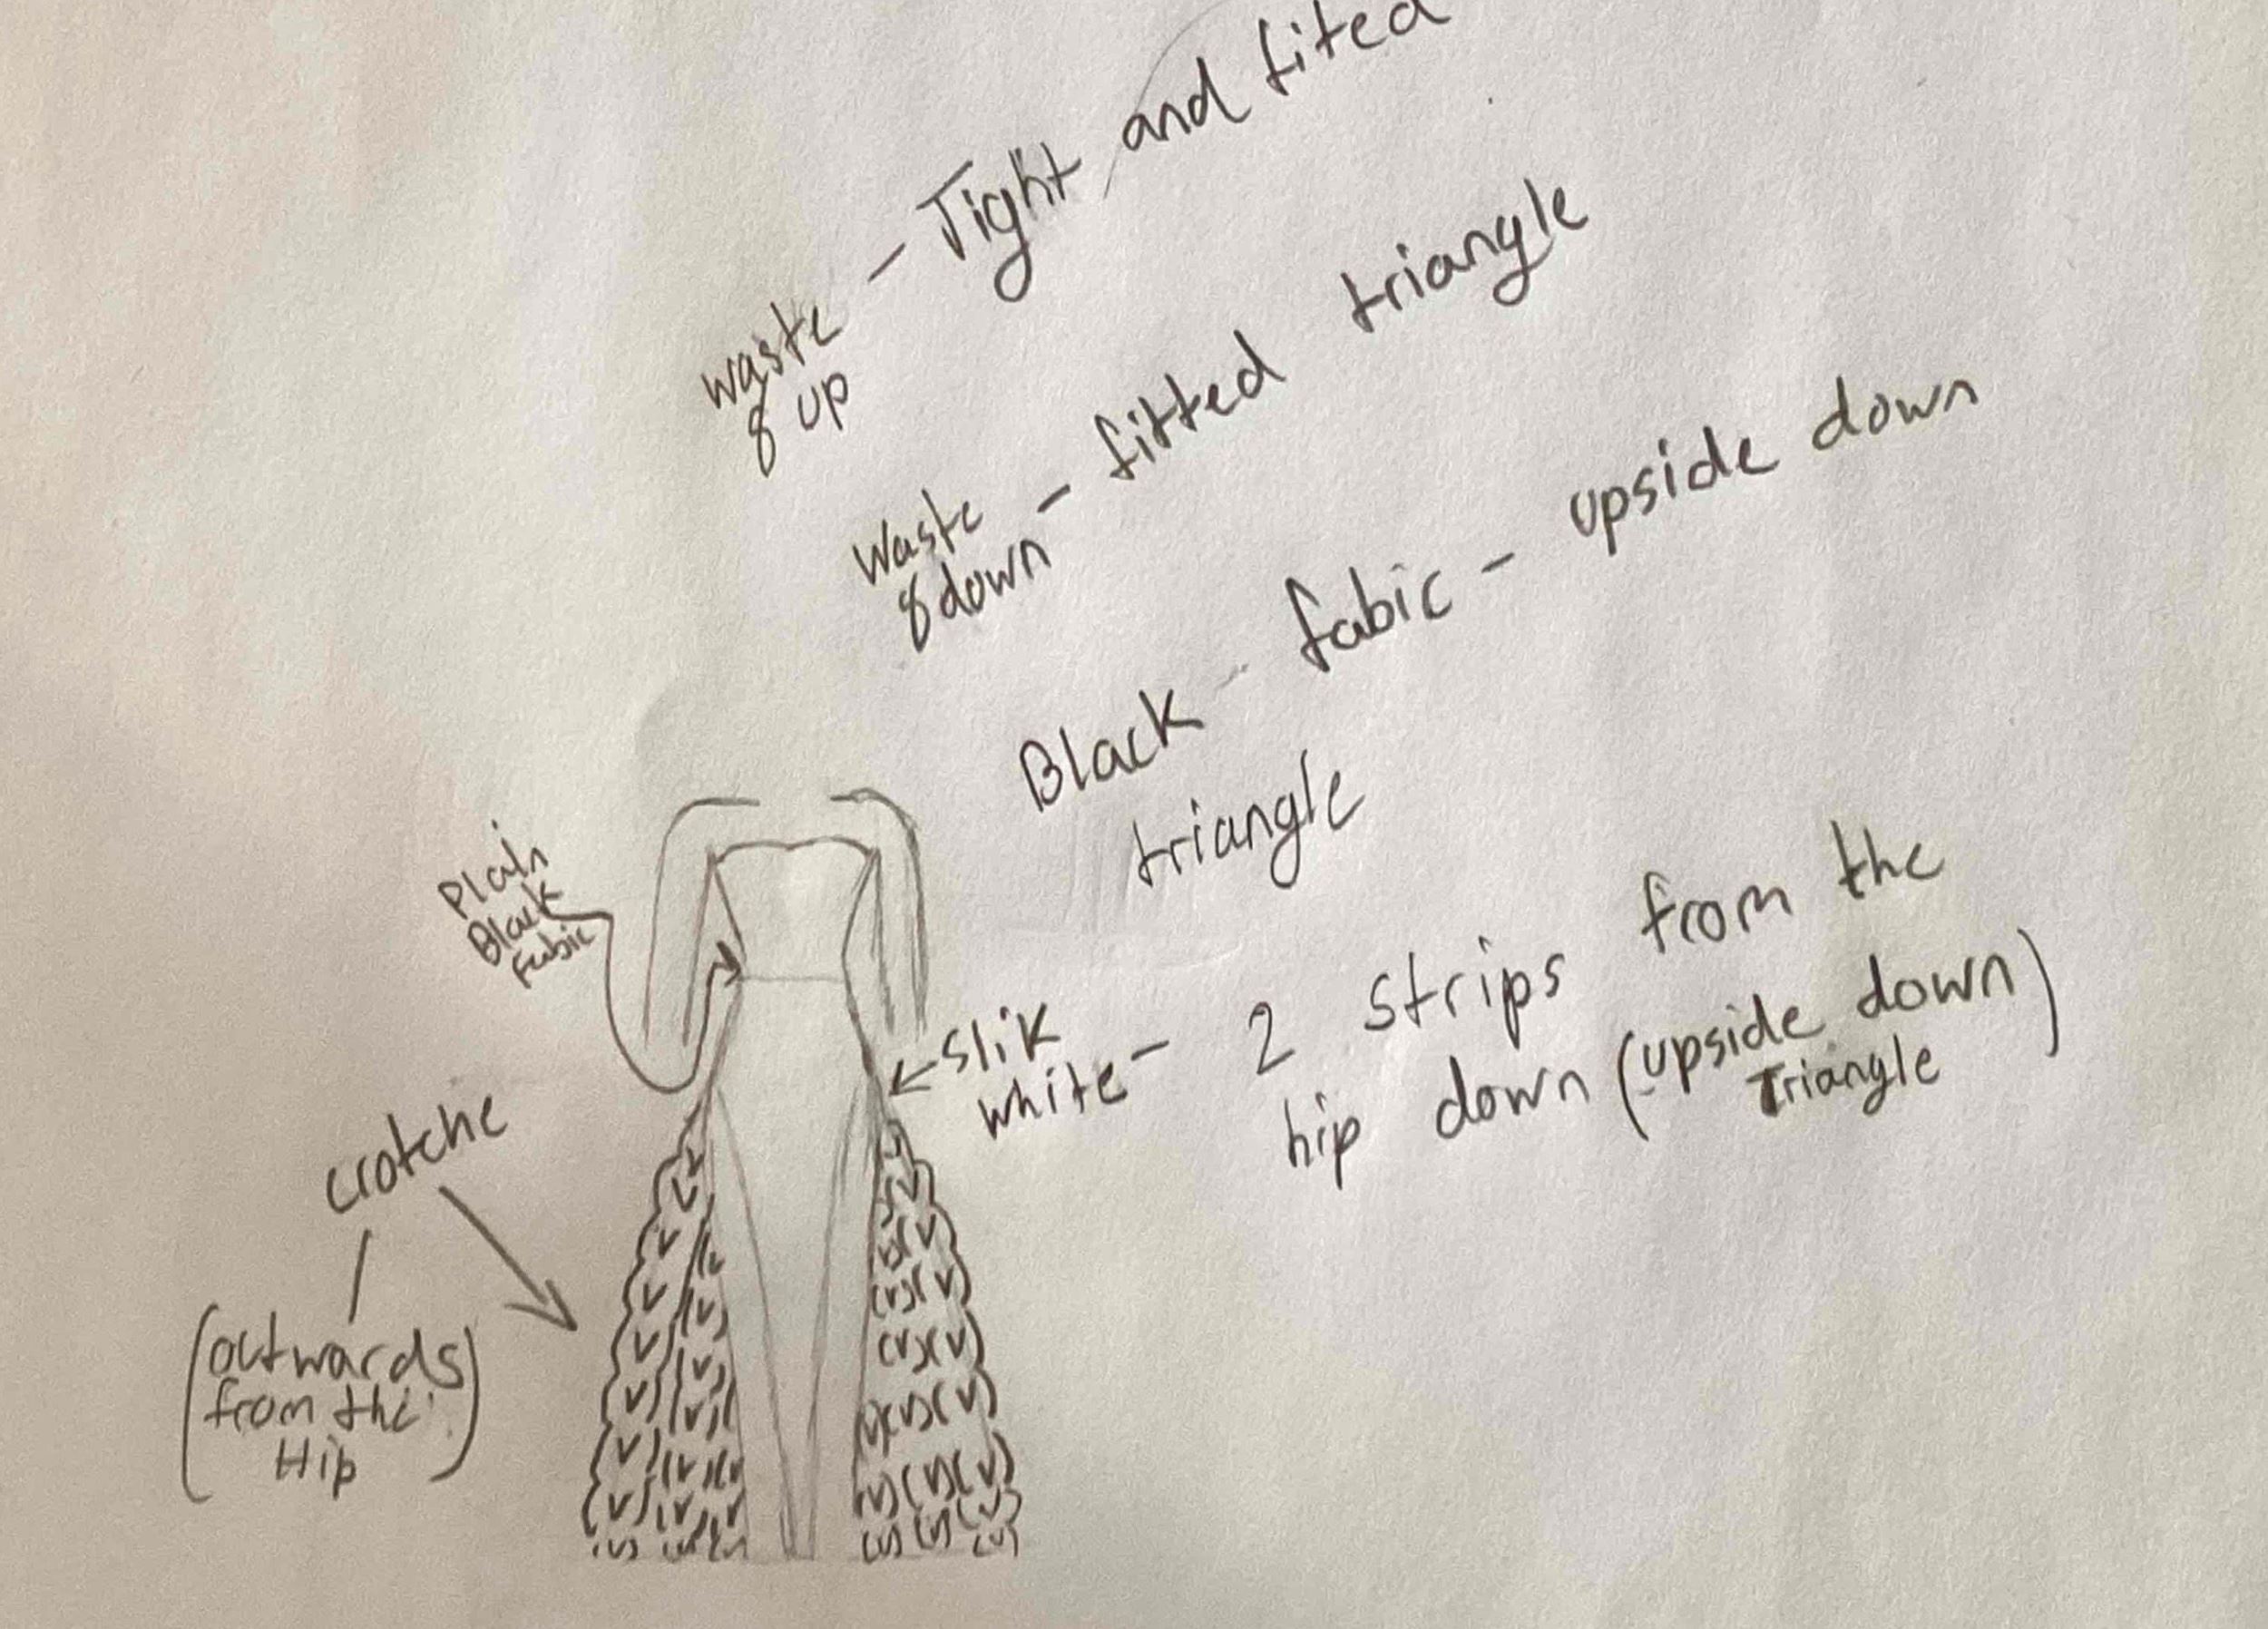 waste - Tight and fited
& up
Waste - fitted triangle
& down
Black - fabic - upside down
triangle
Plain
Black
Fabic
slik
white - 2 strips from the
hip down (upside down)
Triangle
crotche
(outwards
from the
Hip)